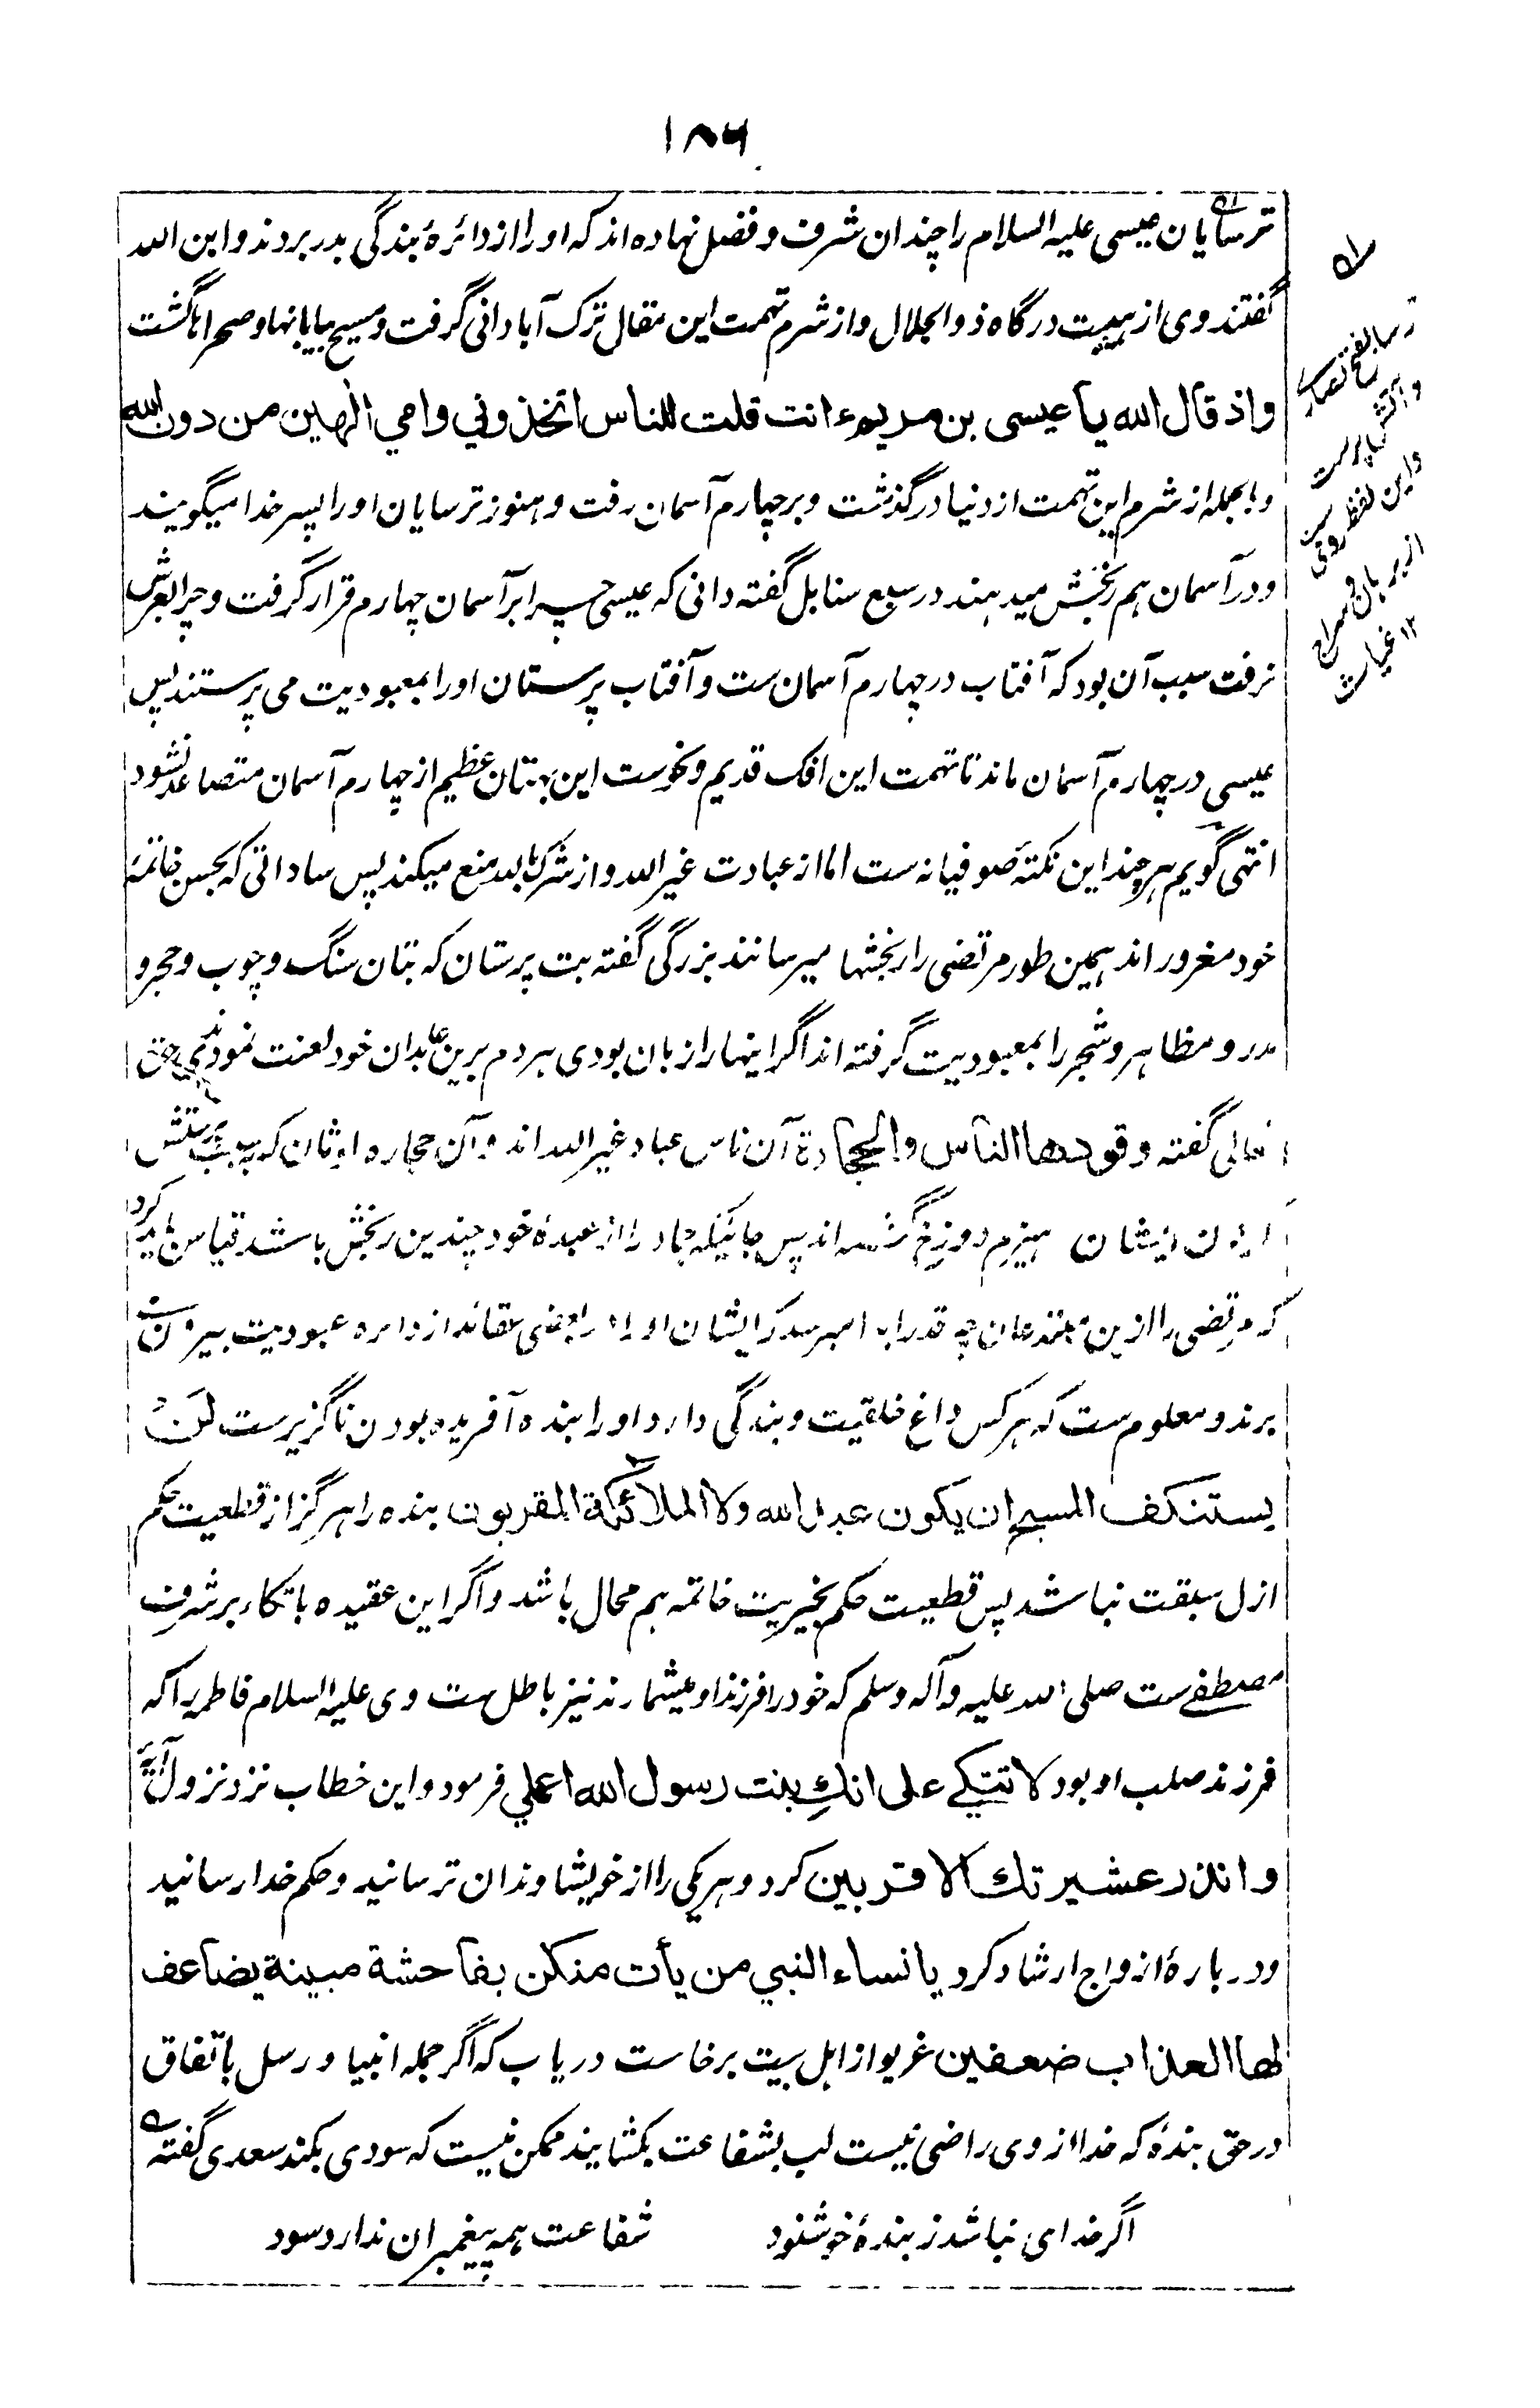 ۱۸۶
ترسایان عیسی علیه السلام را چندان شرف و فضل نهاده اند که او را از دائرهٔ بندگی بدر بردند و ابن الله
گفتند وی از هیبت درگاه ذو الجلال و از شرم تهمت این مقال ترک آبادانی گرفت و مسیح بیابانها و صحراها گشت
واذ قال الله یا عیسی بن مریم ءانت قلت للناس اتخذونی وامی الٰهین من دون الله
و بالجمله از شرم این تهمت از دنیا درگذشت و بر چهارم آسمان رفت و هنوز ترسایان او را پسر خدا میگویند
و در آسمان هم رنجش میدهند در سبع سنابل گفته دانی که عیسی چرا بر آسمان چهارم قرار گرفت و چرا بعرش
نرفت سبب آن بود که آفتاب در چهارم آسمان ست و آفتاب پرستان او را بمعبودیت می پرستند پس
عیسی در چهارم آسمان ماند تا تهمت این افک قدیم و نحوست این بهتان عظیم از چهارم آسمان متصاعد نشود
انتهی گویم هر چند این نکتهٔ صوفیانه ست اما از عبادت غیر الله و از شرک بالله منع میکند پس ساداتی که بحسن خاتمهٔ
خود مغرور اند همین طور مرتضی را رنجشها میرسانند بزرگی گفته بت پرستان که بتان سنگ و چوب و حجر و
مدر و مظاهر و شجر را بمعبودیت گرفته اند اگر اینها را زبان بودی هر دم برین عابدان خود لعنت نمودندی حق
تعالی گفته وقودها الناس والحجارة آن ناس عباد غیر الله اند و آن حجاره اوثان که به سبب پرستش
ایشان هیزم دوزخ شده اند پس جائیکه جماد را از عبدهٔ خود چندین رنجش باشد قیاس باید کرد
که مرتضی را ازین معتقدان چه قدر ایذا میرسد که ایشان او را در بعضی عقائد از دایره عبودیت بیرون
برند و معلوم ست که هر کس داغ خلقیت و بندگی دارد او را بنده آفریده بودن ناگزیر ست لن
یستنکف المسیح ان یکون عبدا لله ولا الملائکة المقربون بنده را هرگز از قطعیت حکم
ازل سبقت نباشد پس قطعیت حکم بخیریت خاتمه هم محال باشد و اگر این عقیده باتکاء بر شرف
مصطفے ست صلی الله علیه وآله وسلم که خود را فرزند او میشمارند نیز باطل ست وی علیه السلام فاطمه را که
فرزند صلب او بود لا تتکے علی انكِ بنت رسول الله اعملی فرمود و این خطاب نزد نزول آیهٔ
وانذر عشیرتك الاقربین کرد و هر یکی را از خویشاوندان ترسانید و حکم خدا رسانید
و در بارهٔ ازواج ارشاد کرد یا نساء النبی من یأت منکن بفاحشة مبینة یضاعف
لها العذاب ضعفین غریو از اهل بیت برخاست دریاب که اگر جمله انبیا و رسل باتفاق
در حق بندهٔ که خدا از وی راضی نیست لب بشفاعت بکشایند ممکن نیست که سودی بکند سعدی گفته ه
اگر خدای نباشد ز بندهٔ خوشنود شفاعت همه پیغمبران ندارد سود
ترسا بالفتح نصاری
و آتش پرست
و این لفظ رومی ست
از برهان و سراج
۱۲ غیاث